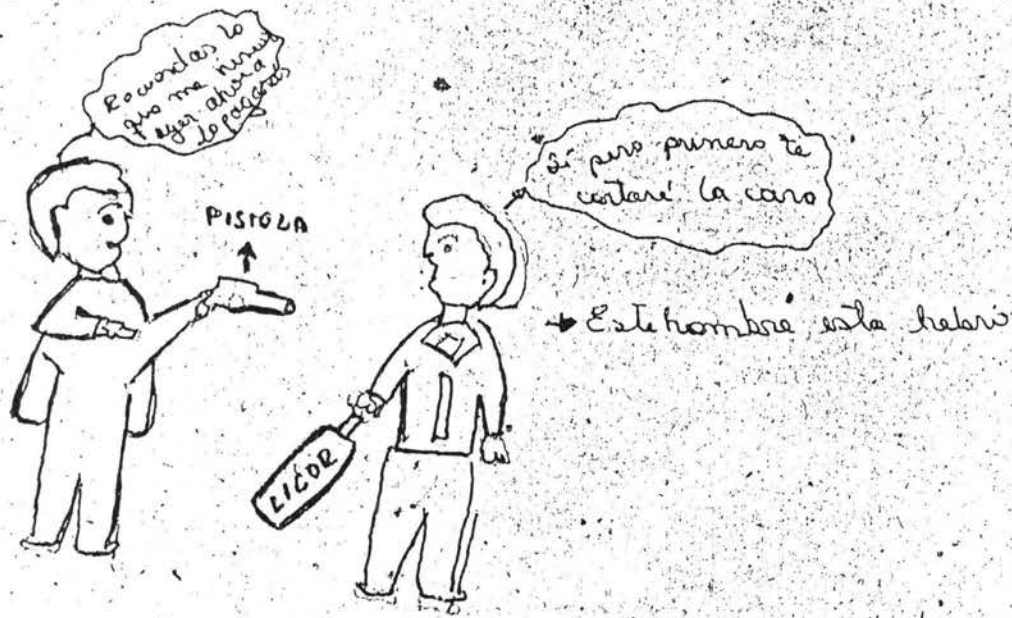 Recuerdas lo
que me hiciste
ayer ahora
lo pagarás
Sí pero primero te
cortaré la cara
PISTOLA
Este hombre esta hebrio
LICOR